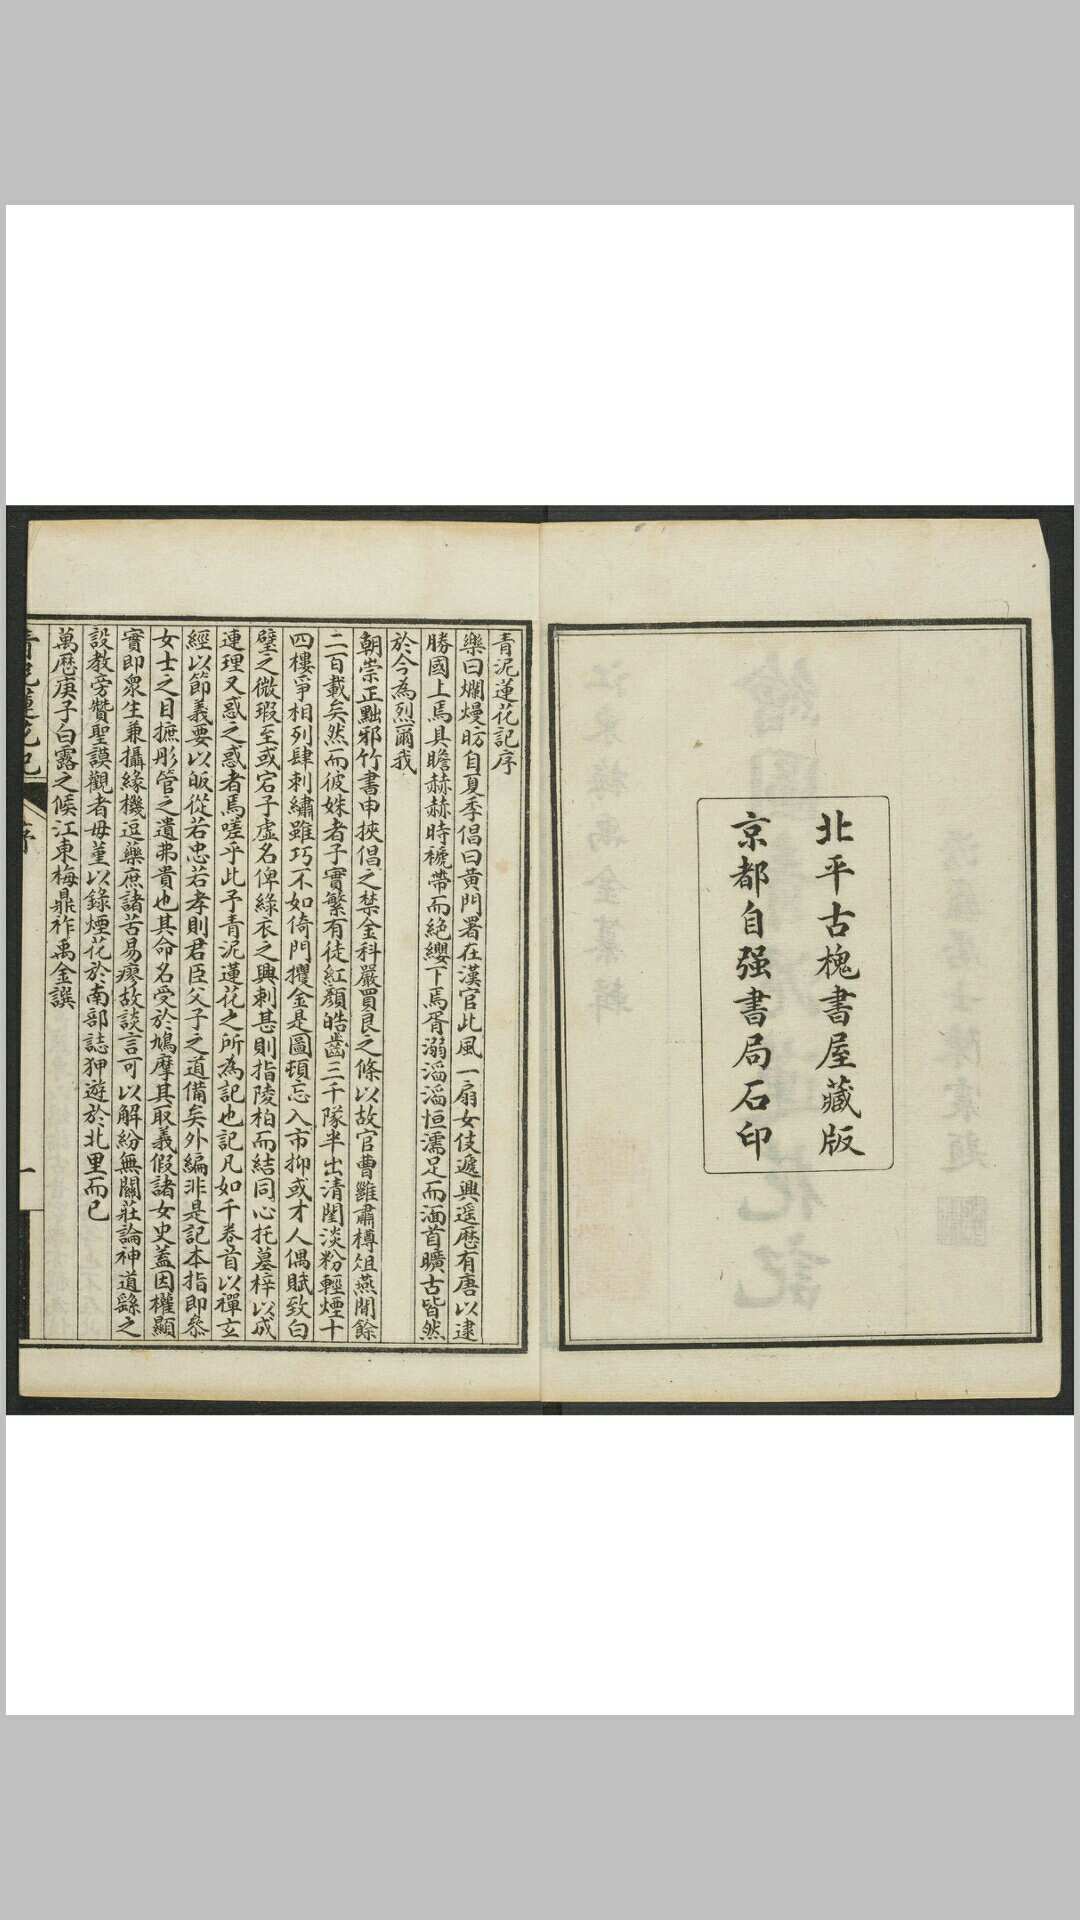 北平古槐書屋藏版
京都自强書局石印
青泥蓮花記序
樂曰爛熳昉自夏季倡曰黄門署在漢官此風一扇女伎遞興遥歷有唐以逮
勝國上焉具瞻赫赫時褫帶而絕纓下焉胥溺滔滔恒濡足而湎首曠古皆然
於今為烈爾我
朝崇正黜邪竹書申挾倡之禁金科嚴買良之條以故官曹雖肅樽俎燕閒餘
二百載矣然而彼姝者子實繁有徒紅顏皓齒三千隊半出清閨淡粉輕煙十
四樓爭相列肆刺繡雖巧不如倚門攫金是圖頓忘入市抑或才人偶賦致白
璧之微瑕至或宕子虛名俾綠衣之興刺甚則指陵柏而結同心托墓梓以成
連理又惑之惑者焉嗟乎此予青泥蓮花之所為記也記凡如千卷首以禪玄
經以節義要以皈從若忠若孝則君臣父子之道備矣外編非是記本指即叅
女士之目摭彤管之遺弗貴也其命名受於鳩摩其取義假諸女史蓋因權顯
實即衆生兼攝緣機逗藥庶諸苦易瘳故談言可以解紛無關莊論神道繇之
設教旁贊聖謨觀者毋菫以錄煙花於南部誌狎遊於北里而已
萬歷庚子白露之候江東梅鼎祚禹金譔
青泥蓮花記
序
一